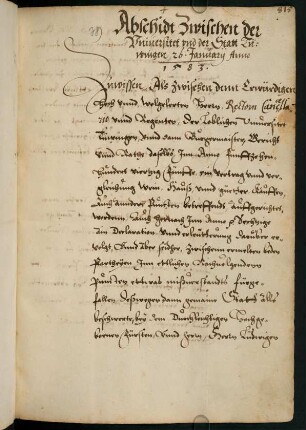 Abschidt Zwischen der
Vniuersitet vnd der Statt Tü-
wingen 26 January Anno
1583.
Zuwissen Als Zwischen denn Erwürdigen
Hoch vnnd wolgelerten Herrn Rectorn Cancella
rio vnnd Regenten, der Loblichen Vniuersitet
Tüwingen, vnnd dann Burgermaister, Gericht
vnnd Rath daselbst, Inn Anno fünffzehen
hundert viertzig fünffe, ein vertrag vnnd ver-
gleichung wein, Hauß, vnnd güetter Keüffen,
auch anderer Puncten betreffendt auffgerichtet
worden, Auch gevolgt Inn Anno sechtzige
ain Declaration vnnd erleütterung darüber er-
volgt, Vnnd aber seidher, zwischenn ermelten beden
Partheyen Inn ettlichen Nachuolgendenn
Puncten ettwas mißuerstandts fürge-
fallen, deßwegen dann gemaine Statt alls
beschwerte, bey dem Durchleüchtigen Hochge-
bornen Fürsten, Vnnd Herrn, Herrn Ludwigen